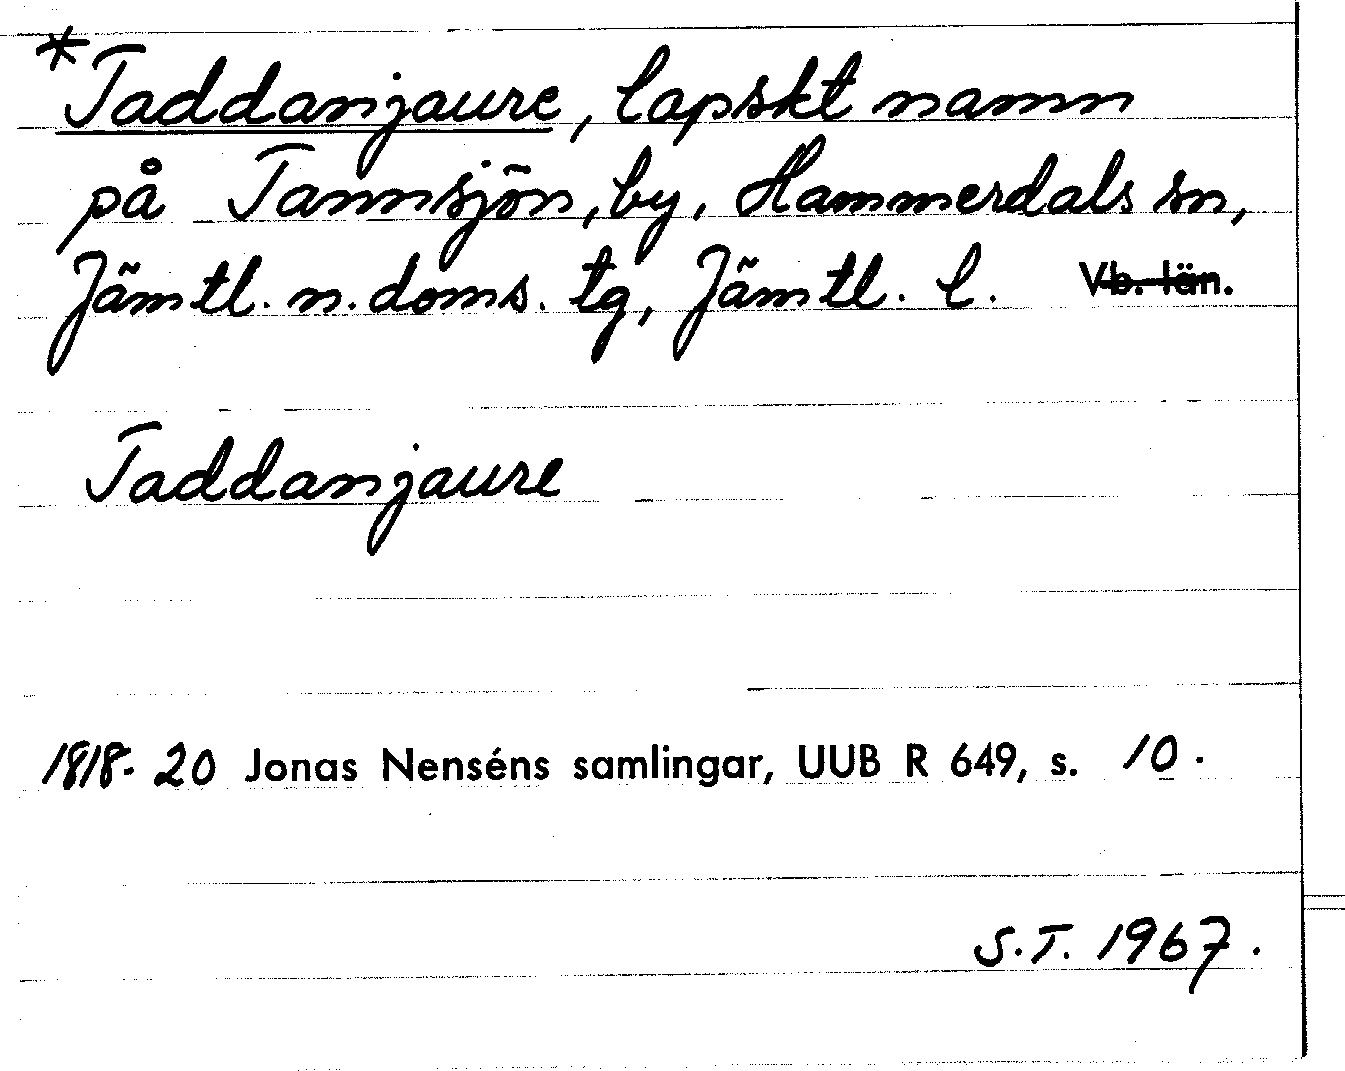 *Taddanjaure, lapskt namn
på Tannsjön, by, Hammerdals sn,
Jämtl. n. doms. tg, Jämtl. l. Vb. län.
Taddanjaure
1818-20 Jonas Nenséns samlingar, UUB R 649, s. 10.
S.T. 1967.